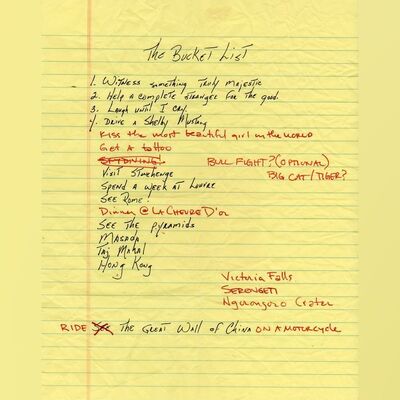 The Bucket List
1. Witness something truly majestic
2. Help a complete stranger for the good.
3. Laugh until I cry.
4. Drive a Shelby Mustang
Kiss the most beautiful girl in the world
Get a tattoo
SKYDIVING! BULL FIGHT? (OPTIONAL)
Visit Stonehenge BIG CAT/TIGER?
Spend a week at Louvre
See Rome!
Dinner @ La Cheure D'or
See the pyramids
Masada
Taj Mahal
Hong Kong
Victoria Falls
SERENGETI
Ngorongoro Crater
RIDE See THE Great Wall of China ON A MOTORCYCLE